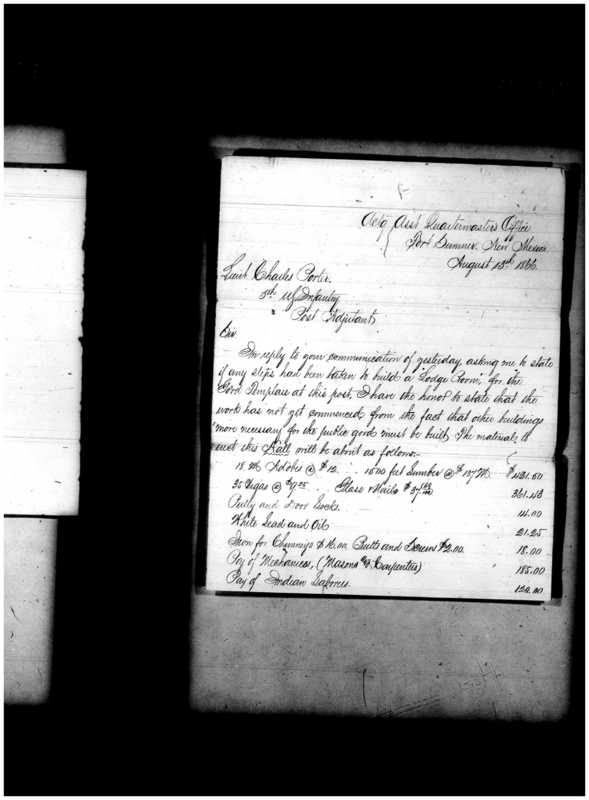 Act'g Ass't Quartermasters Office
Fort Sumner, New Mexico
August 13th 1866.
Lieut Charles Porter.
5th US Infantry
Post Adjutant
Sir
In reply to your communication of yesterday, asking me to state
if any steps had been taken to build a "Lodge Room", for the
Good Templars at this post, I have the honor to state that the
work has not yet commenced from the fact that other buildings
more necessary for the public good must be built. The materials to
erect this Hall will be about as follows:-
18 M Adobes @ $12. 1500 feet Lumber @ $ M. $431.50
35 Vegas @ $7 Glass & Nails $ 361.43
Putty and Door Locks. 14.00
White Lead and Oil 21.25
Iron for Chimneys $16.00 Butts and Screws $2.00 18.00
Pay of Mechanics, (Masons & Carpenters) 185.00
Pay of Indian Laborers. 120.00